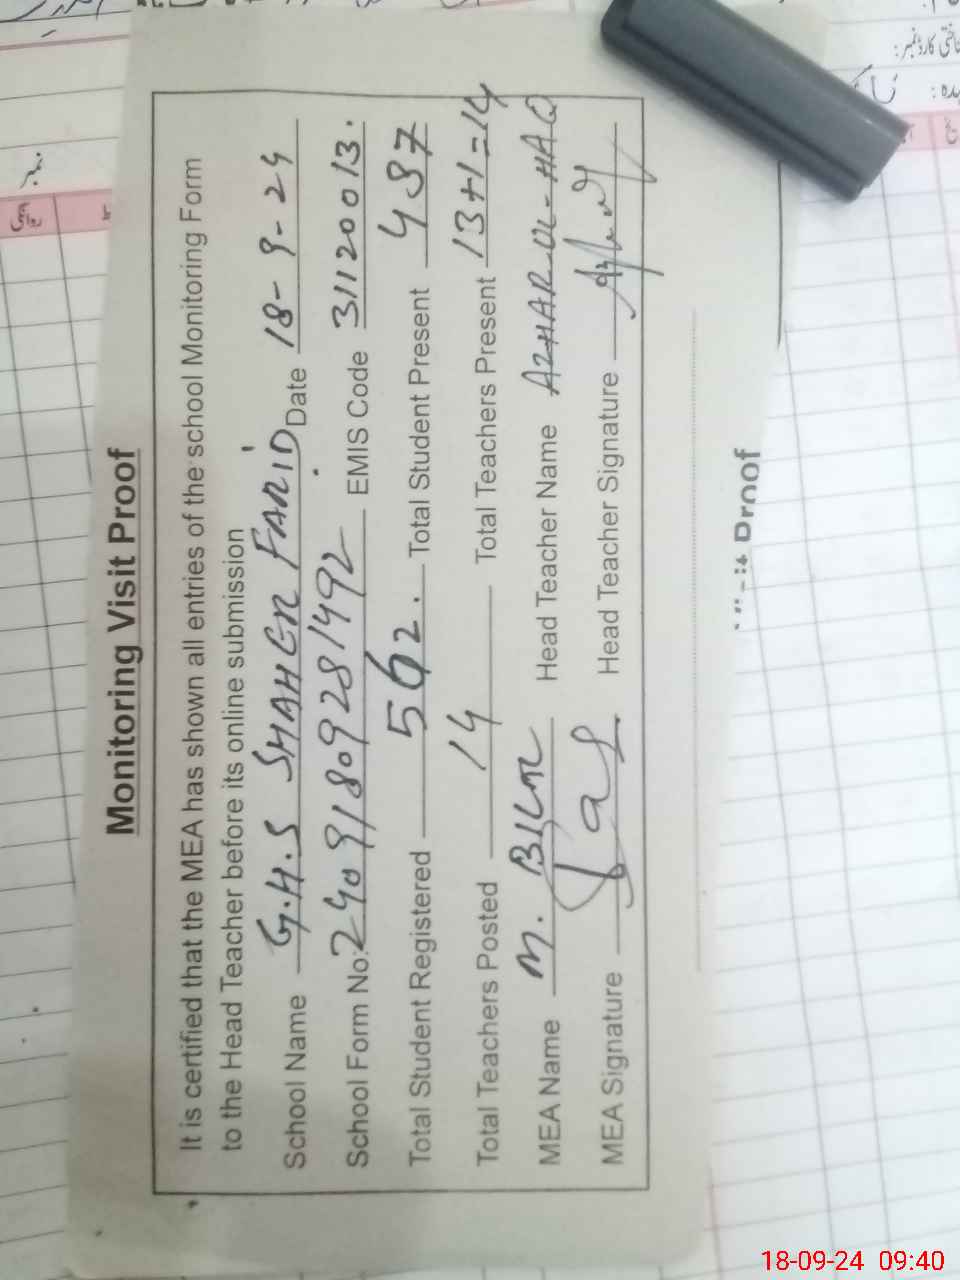 Monitoring Visit Proof
It is certified that the MEA has shown all entries of the school Monitoring Form
to the Head Teacher before its online submission
School Name G.H.S SHAHER FARID Date 18-9-24
School Form No: 24091809281492 EMIS Code 31120013.
Total Student Registered 562. Total Student Present 487
Total Teachers Posted 14 Total Teachers Present 13+1=14
MEA Name M. BILAL Head Teacher Name AZHAR-UL-HAQ
MEA Signature Head Teacher Signature
Proof
نمبر
18-09-24 09:40